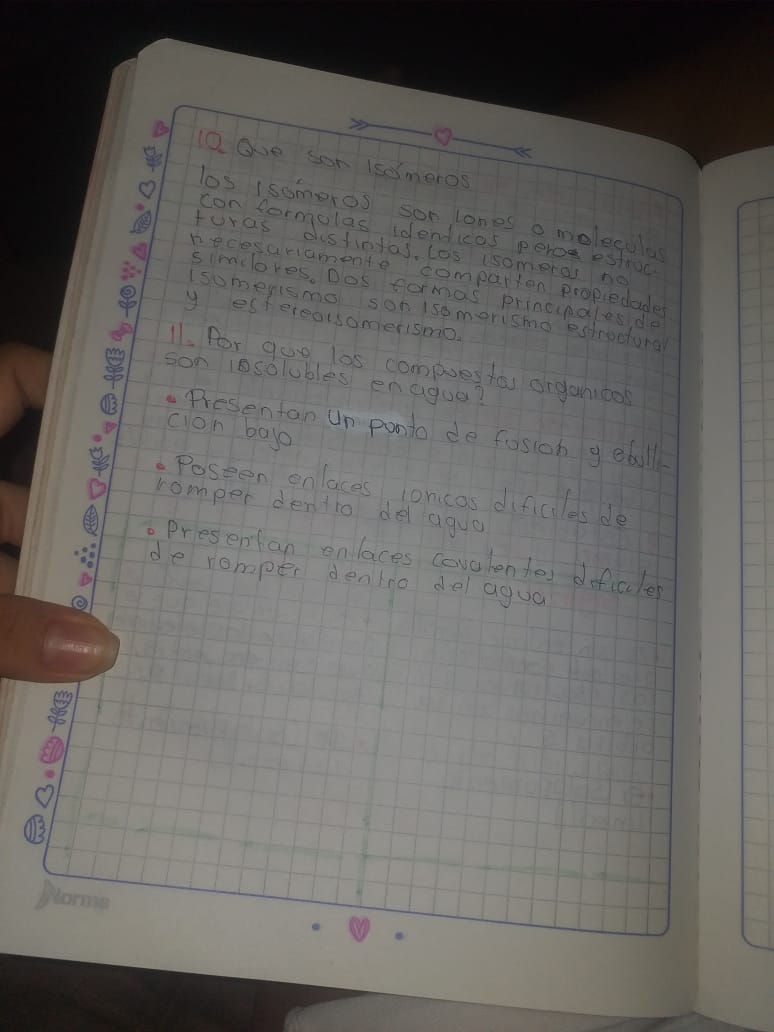 10. Que son Isómeros
los Isómeros son Iones o moleculas
con formulas identicas pero estruc-
turas distintas. Los isomeros no
necesariamente comparten propiedades
similares. Dos formas principales de
isomerismo son isomerismo estructural
y estereoisomerismo.
11. Por que los compuestos organicos
son insolubles en agua?
• Presentan un punto de fusion y ebulli-
cion bajo
• Poseen enlaces ionicos dificiles de
romper dentro del agua
• Presentan enlaces covalentes dificiles
de romper dentro del agua
Norma